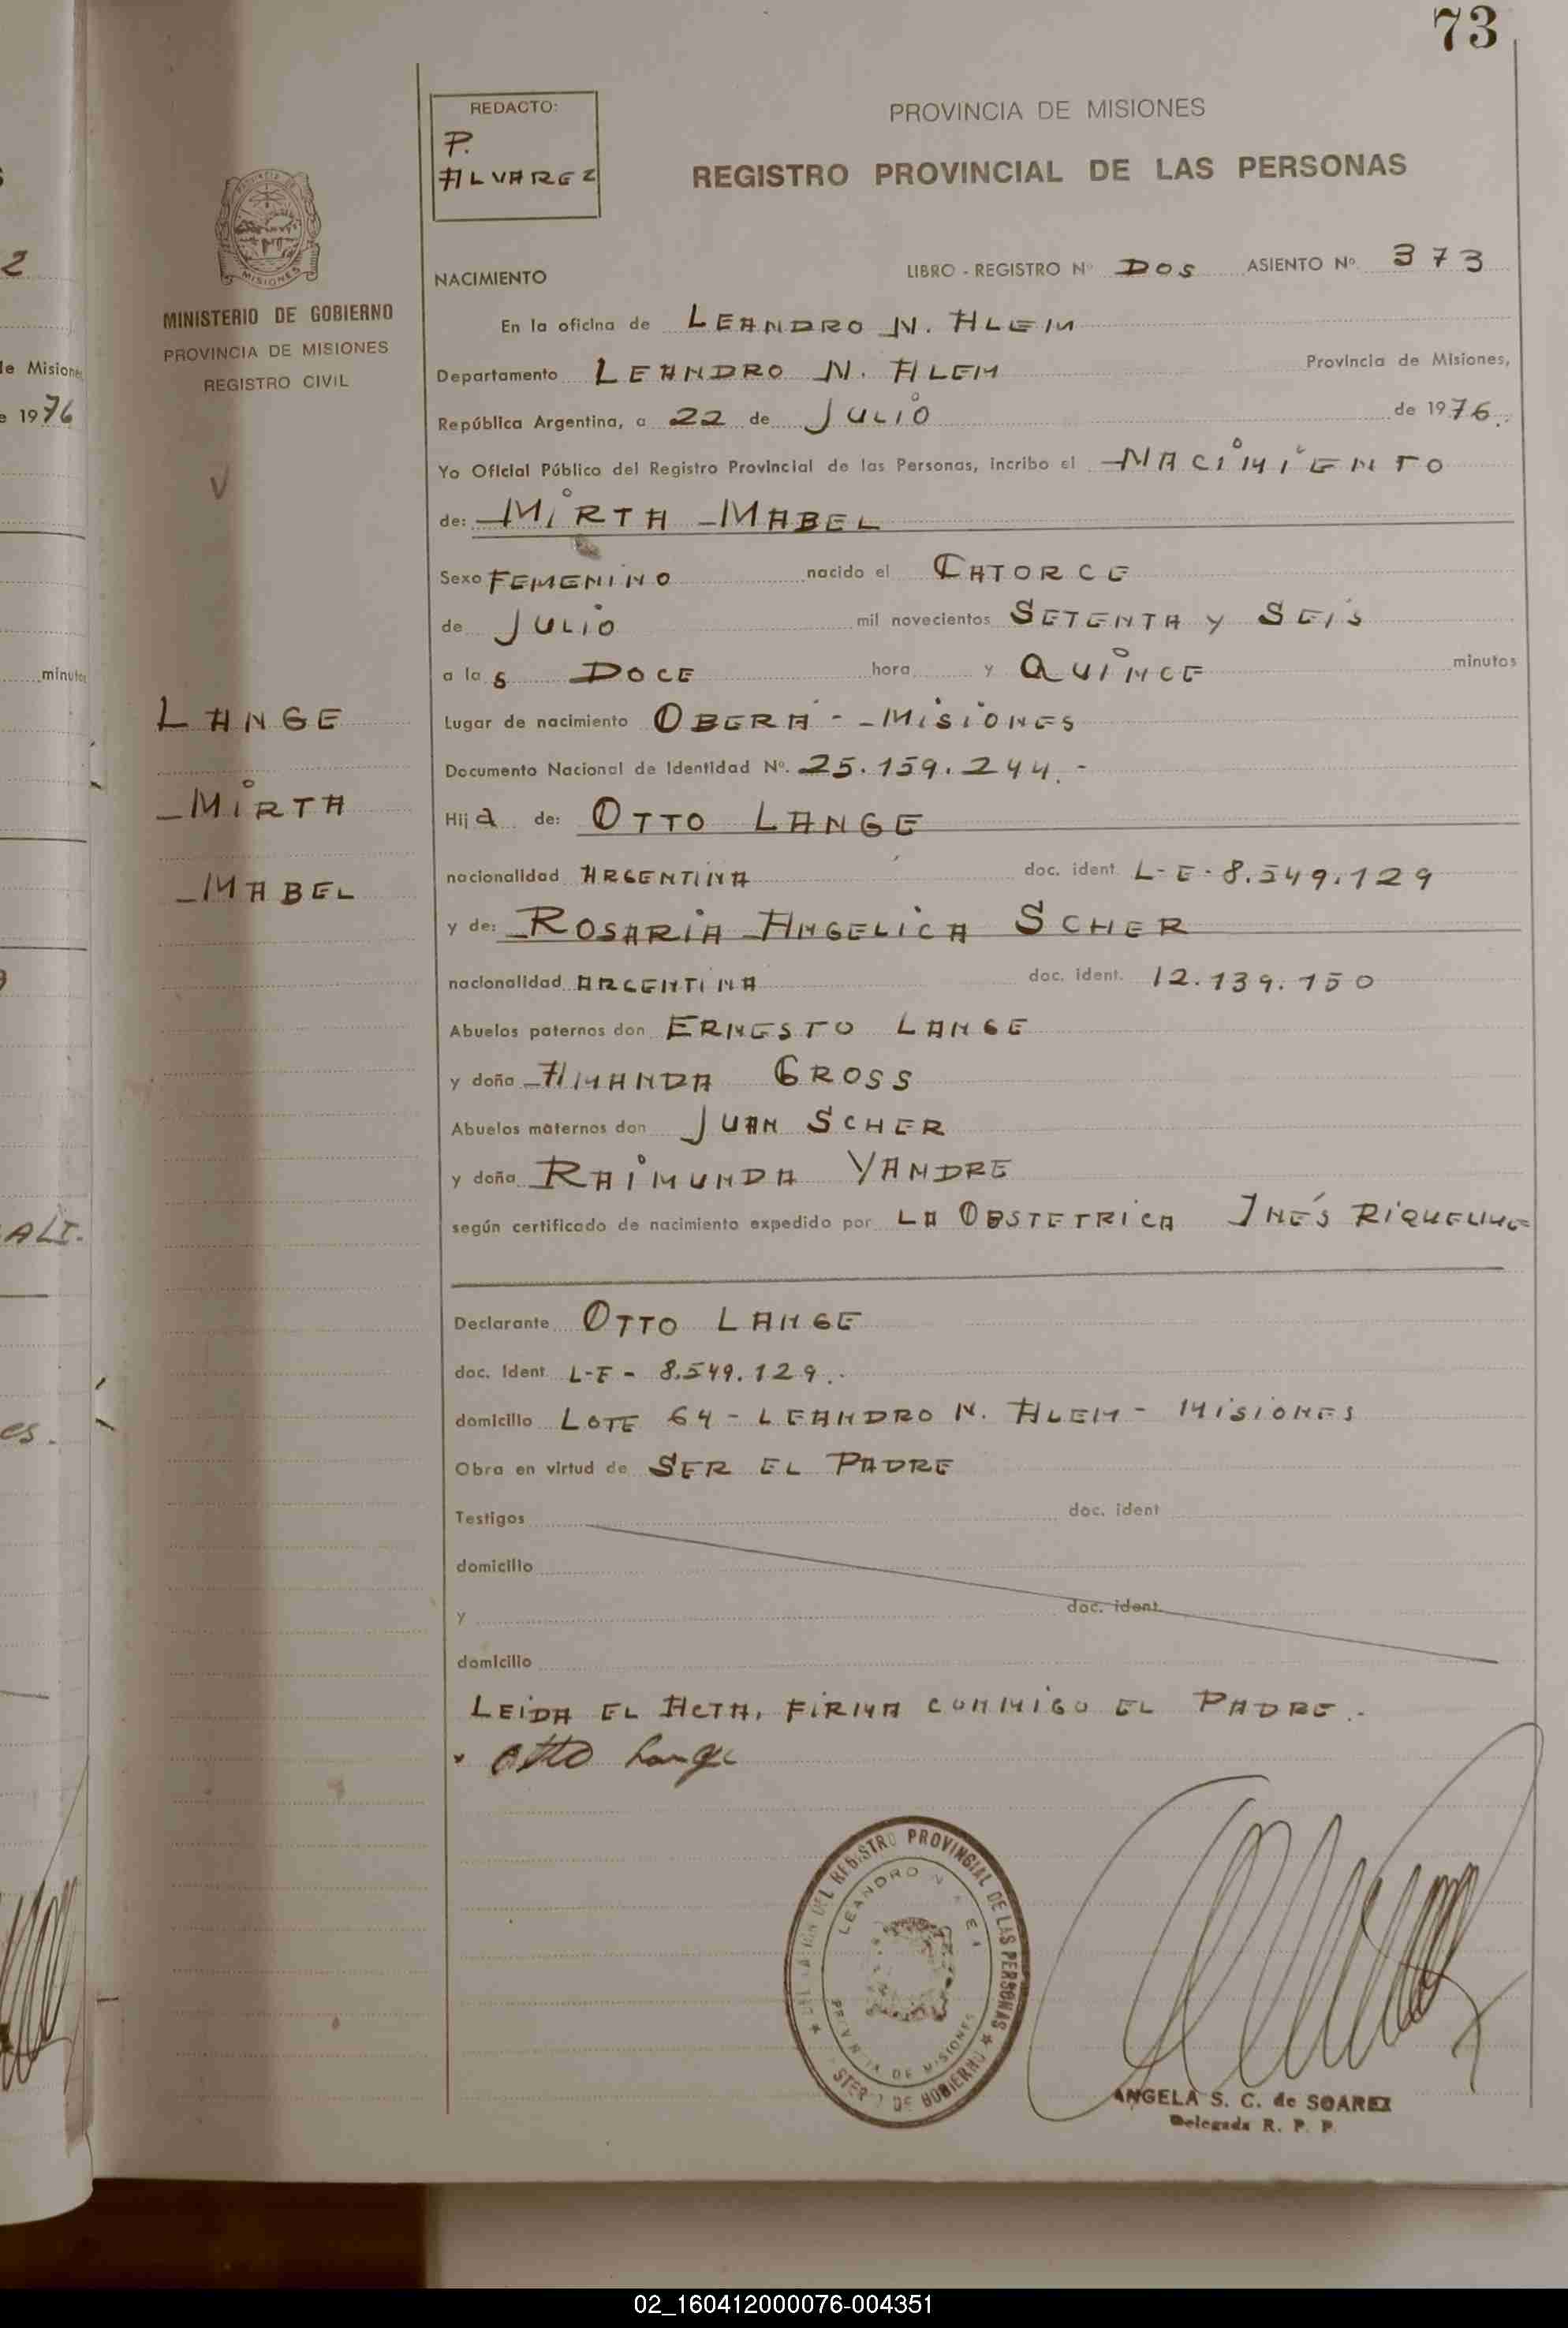 73
REDACTO:
P.
ALVAREZ
PROVINCIA DE MISIONES
REGISTRO PROVINCIAL DE LAS PERSONAS
2
MISIONES
MINISTERIO DE GOBIERNO
PROVINCIA DE MISIONES
REGISTRO CIVIL
NACIMIENTO LIBRO - REGISTRO Nº DOS ASIENTO Nº 373
En la oficina de LEANDRO N. ALEM
Departamento LEANDRO N. ALEM Provincia de Misiones,
República Argentina, a 22 de JULIO de 1976.
Yo Oficial Público del Registro Provincial de las Personas, incribo el NACIMIENTO
de: MIRTA MABEL
Sexo FEMENINO nacido el CATORCE
de JULIO mil novecientos SETENTA Y SEIS
a las DOCE hora y QUINCE minutos
LANGE
MIRTA
MABEL
Lugar de nacimiento OBERA - MISIONES
Documento Nacional de Identidad Nº. 25.159.244.-
Hija de: OTTO LANGE
nacionalidad ARGENTINA doc. ident. L-E-8.549.129
y de: ROSARIA ANGELICA SCHER
nacionalidad ARGENTINA doc. ident. 12.139.150
Abuelos paternos don ERNESTO LANGE
y doña AMANDA GROSS
Abuelos maternos don JUAN SCHER
y doña RAIMUNDA YANDRE
según certificado de nacimiento expedido por LA OBSTETRICA INÉS RIQUELME
Declarante OTTO LANGE
doc. Ident. L-E- 8.549.129.-
domicilio LOTE 64 - LEANDRO N. ALEM - MISIONES
Obra en virtud de SER EL PADRE
Testigos doc. ident
domicilio
y doc. ident.
domicilio
LEIDA EL ACTA, FIRMA CONMIGO EL PADRE.-
Otto Lange
DEL REGISTRO PROVINCIAL DE LAS PERSONAS
LEANDRO N
DE MISIONES
DE GOBIERNO
ANGELA S. C. de SOAREZ
Delegada R. P. P.
de Misiones
de 1976
minutos
ALI.
es.
02_160412000076-004351